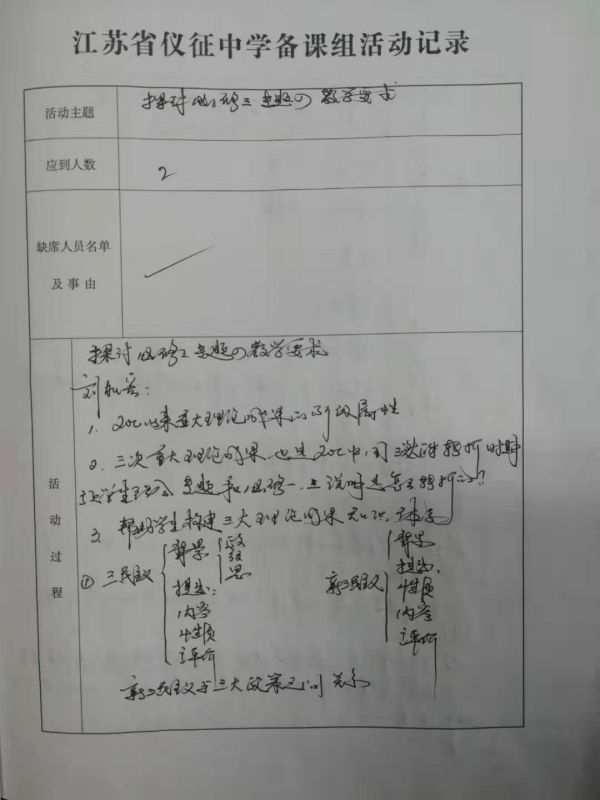 江苏省仪征中学备课组活动记录
活动主题
探讨必修三专题四教学要求
应到人数
2
缺席人员名单
及事由
探讨必修三专题四教学要求
1. 20C以来重大理论成果的阶段属性
2. 三次重大理论成果也是20C中国三次
学生 专题 和必修一、二说明
3. 帮助学生构建三大理论成果知识体系
活动过程
① 三民主义
背景
政
经
思
提出:
内容
性质
评价
新三民主义
背景
提出:
性质
内容
评价
新三民主义与三大政策之间关系